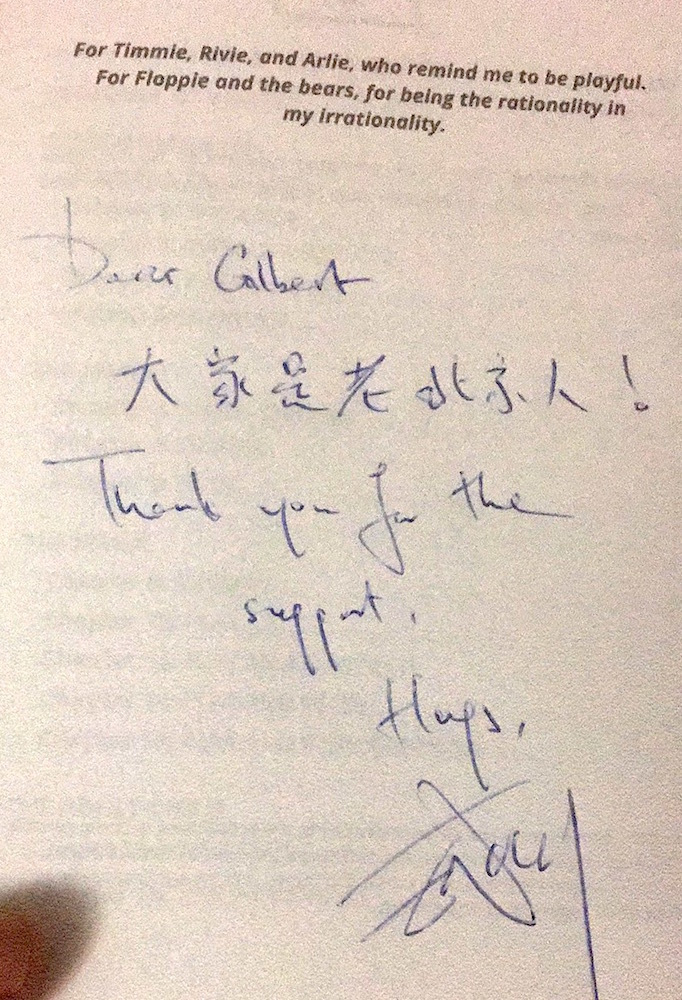 For Timmie, Rivie, and Arlie, who remind me to be playful.
For Floppie and the bears, for being the rationality in
my irrationality.
Dear Galbert
大家是老北京人！
Thank you for the
support.
Hugs,